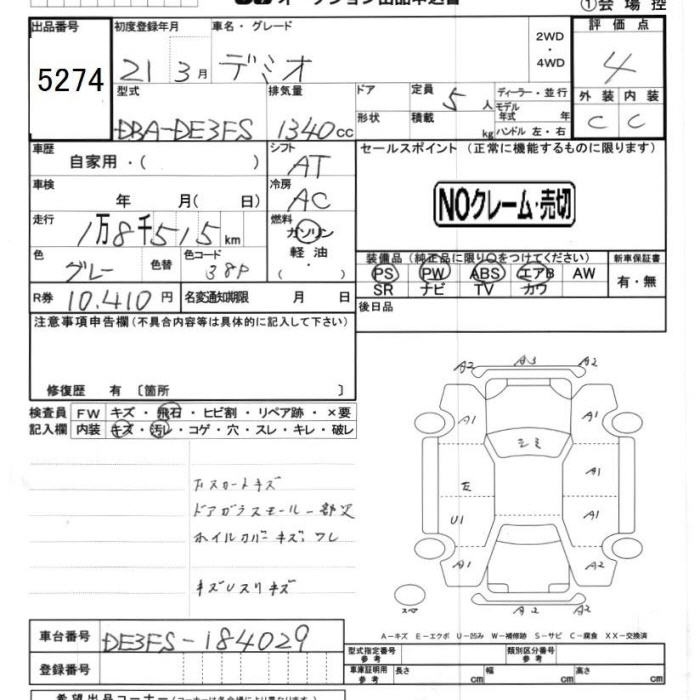 オークション出品申込書
①会場控
出品番号
5274
初度登録年月
21 3月
車名・グレード
デミオ
2WD
・
4WD
評価点
4
型式
DBA-DE3FS
排気量
1340cc
ドア
定員 5人
形状
積載 kg
ディーラー・並行
モデル年式 年
ハンドル 左・右
外装 内装
C C
車歴
自家用・( )
シフト
AT
セールスポイント (正常に機能するものに限ります)
車検
年 月( 日)
冷房
AC
NOクレーム・売切
走行
1万8千515km
燃料
ガソリン
軽油
( ・ )
色
グレー
色替
色コード
38P
装備品(純正品に限り○をつけてください)
PS PW ABS エアB AW
SR ナビ TV カワ
新車保証書
有・無
R券 10.410円
名変通知期限 月 日
後日品
注意事項申告欄(不具合内容等は具体的に記入して下さい)
修復歴 有 〔箇所 〕
検査員
記入欄
FW キズ・飛石・ヒビ割・リペア跡・×要
内装 キズ・汚レ・コゲ・穴・スレ・キレ・破レ
A2 A3 A2
A1 A1
シミ
A1
E
U1 A1
A1 A2
A2 A2
スペ
ドアガラスモール一部欠
ホイルカバーキズ、ワレ
キズUスリキズ
A-キズ E-エクボ U-凹み W-補修跡 S-サビ C-腐食 XX-交換済
車台番号
DE3FS-184029
登録番号
型式指定番号
参考
類別区分番号
参考
車庫証明用
参考
長さ cm
幅 cm
高さ cm
希望出品コーナー(コーナーは各会場により異なります)